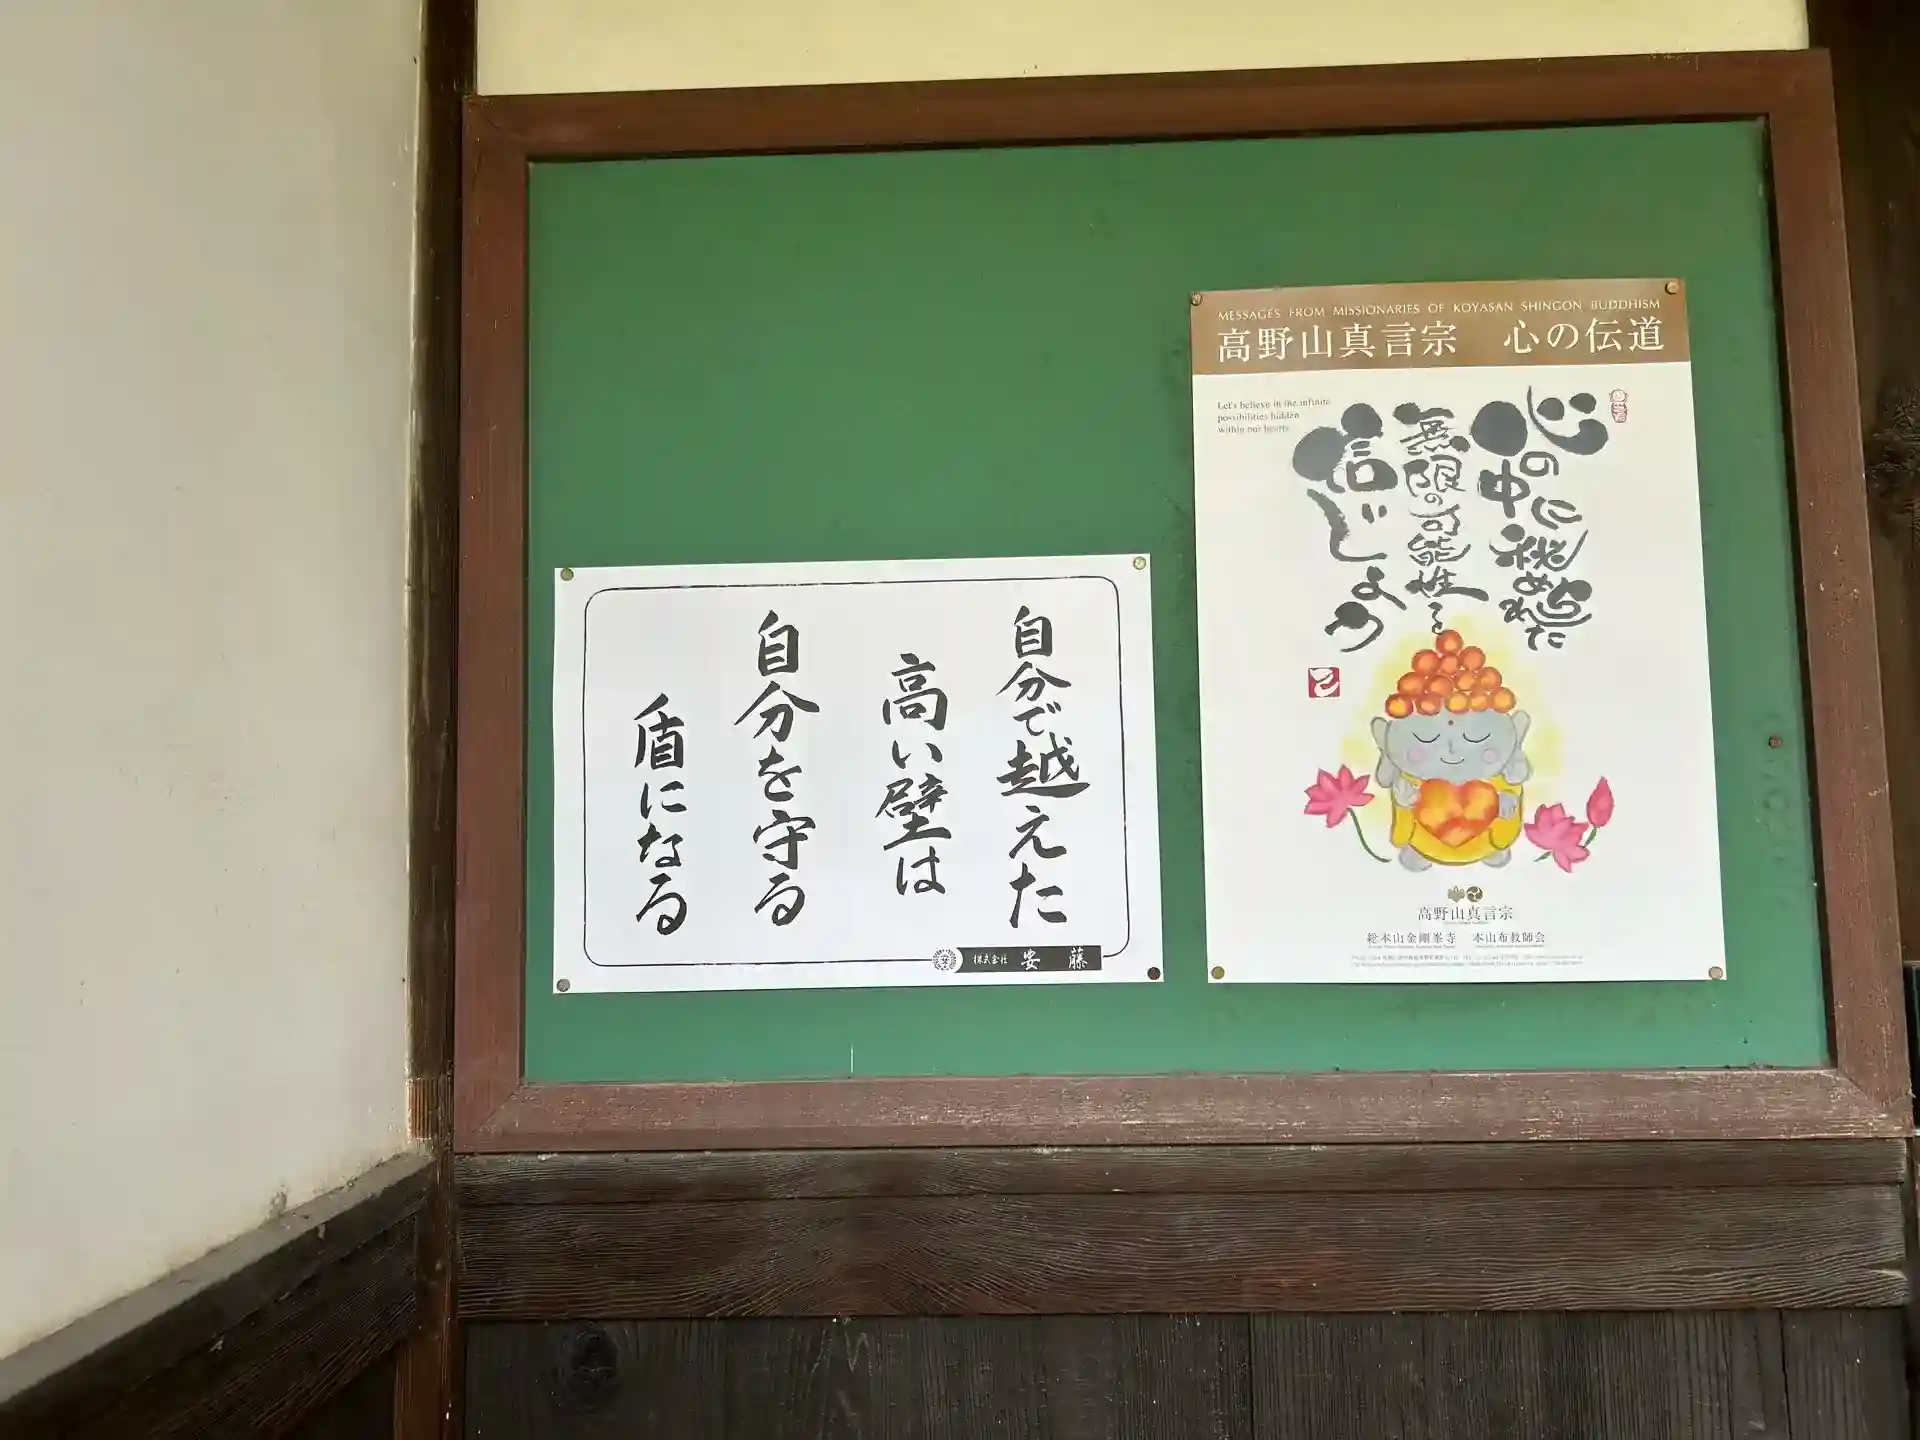 自分で越えた
高い壁は
自分を守る
盾になる
株式会社 安藤
MESSAGES FROM MISSIONARIES OF KOYASAN SHINGON BUDDHISM
高野山真言宗 心の伝道
Let's believe in the infinite
possibilities hidden
within our hearts
心の中に秘められた
無限の可能性を
信じよう
高野山真言宗
総本山金剛峯寺 本山布教師会